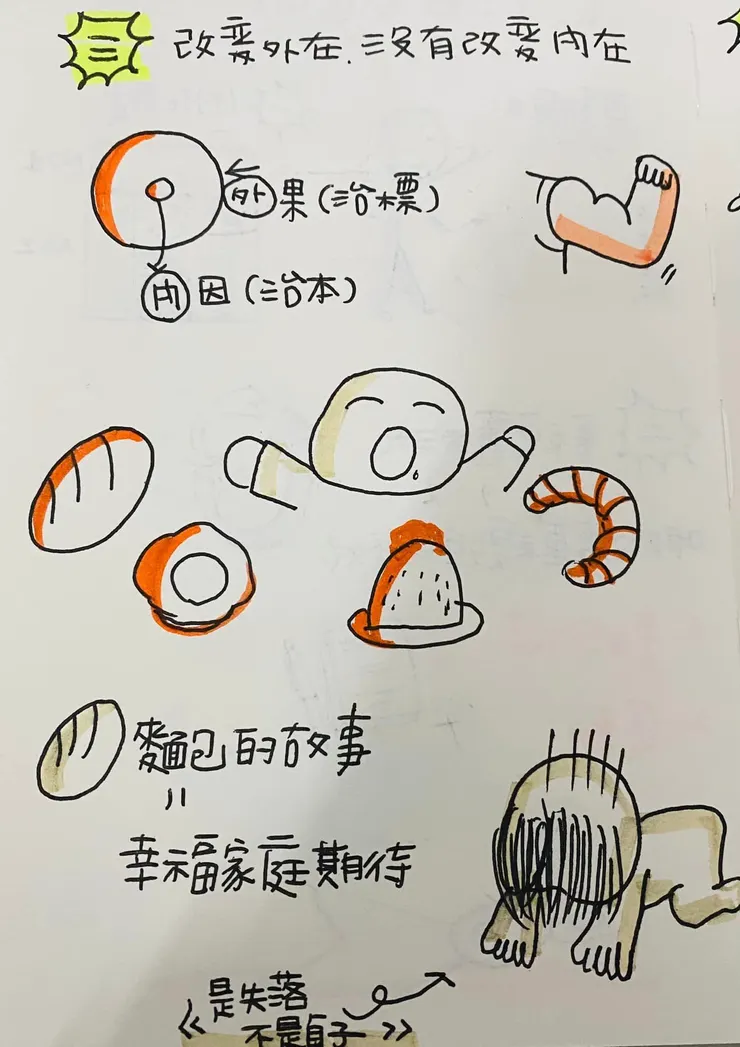 三 改變外在.沒有改變內在
外果(治標)
內因(治本)
麵包的故事
=
幸福家庭期待
《是失落
不是貞子》